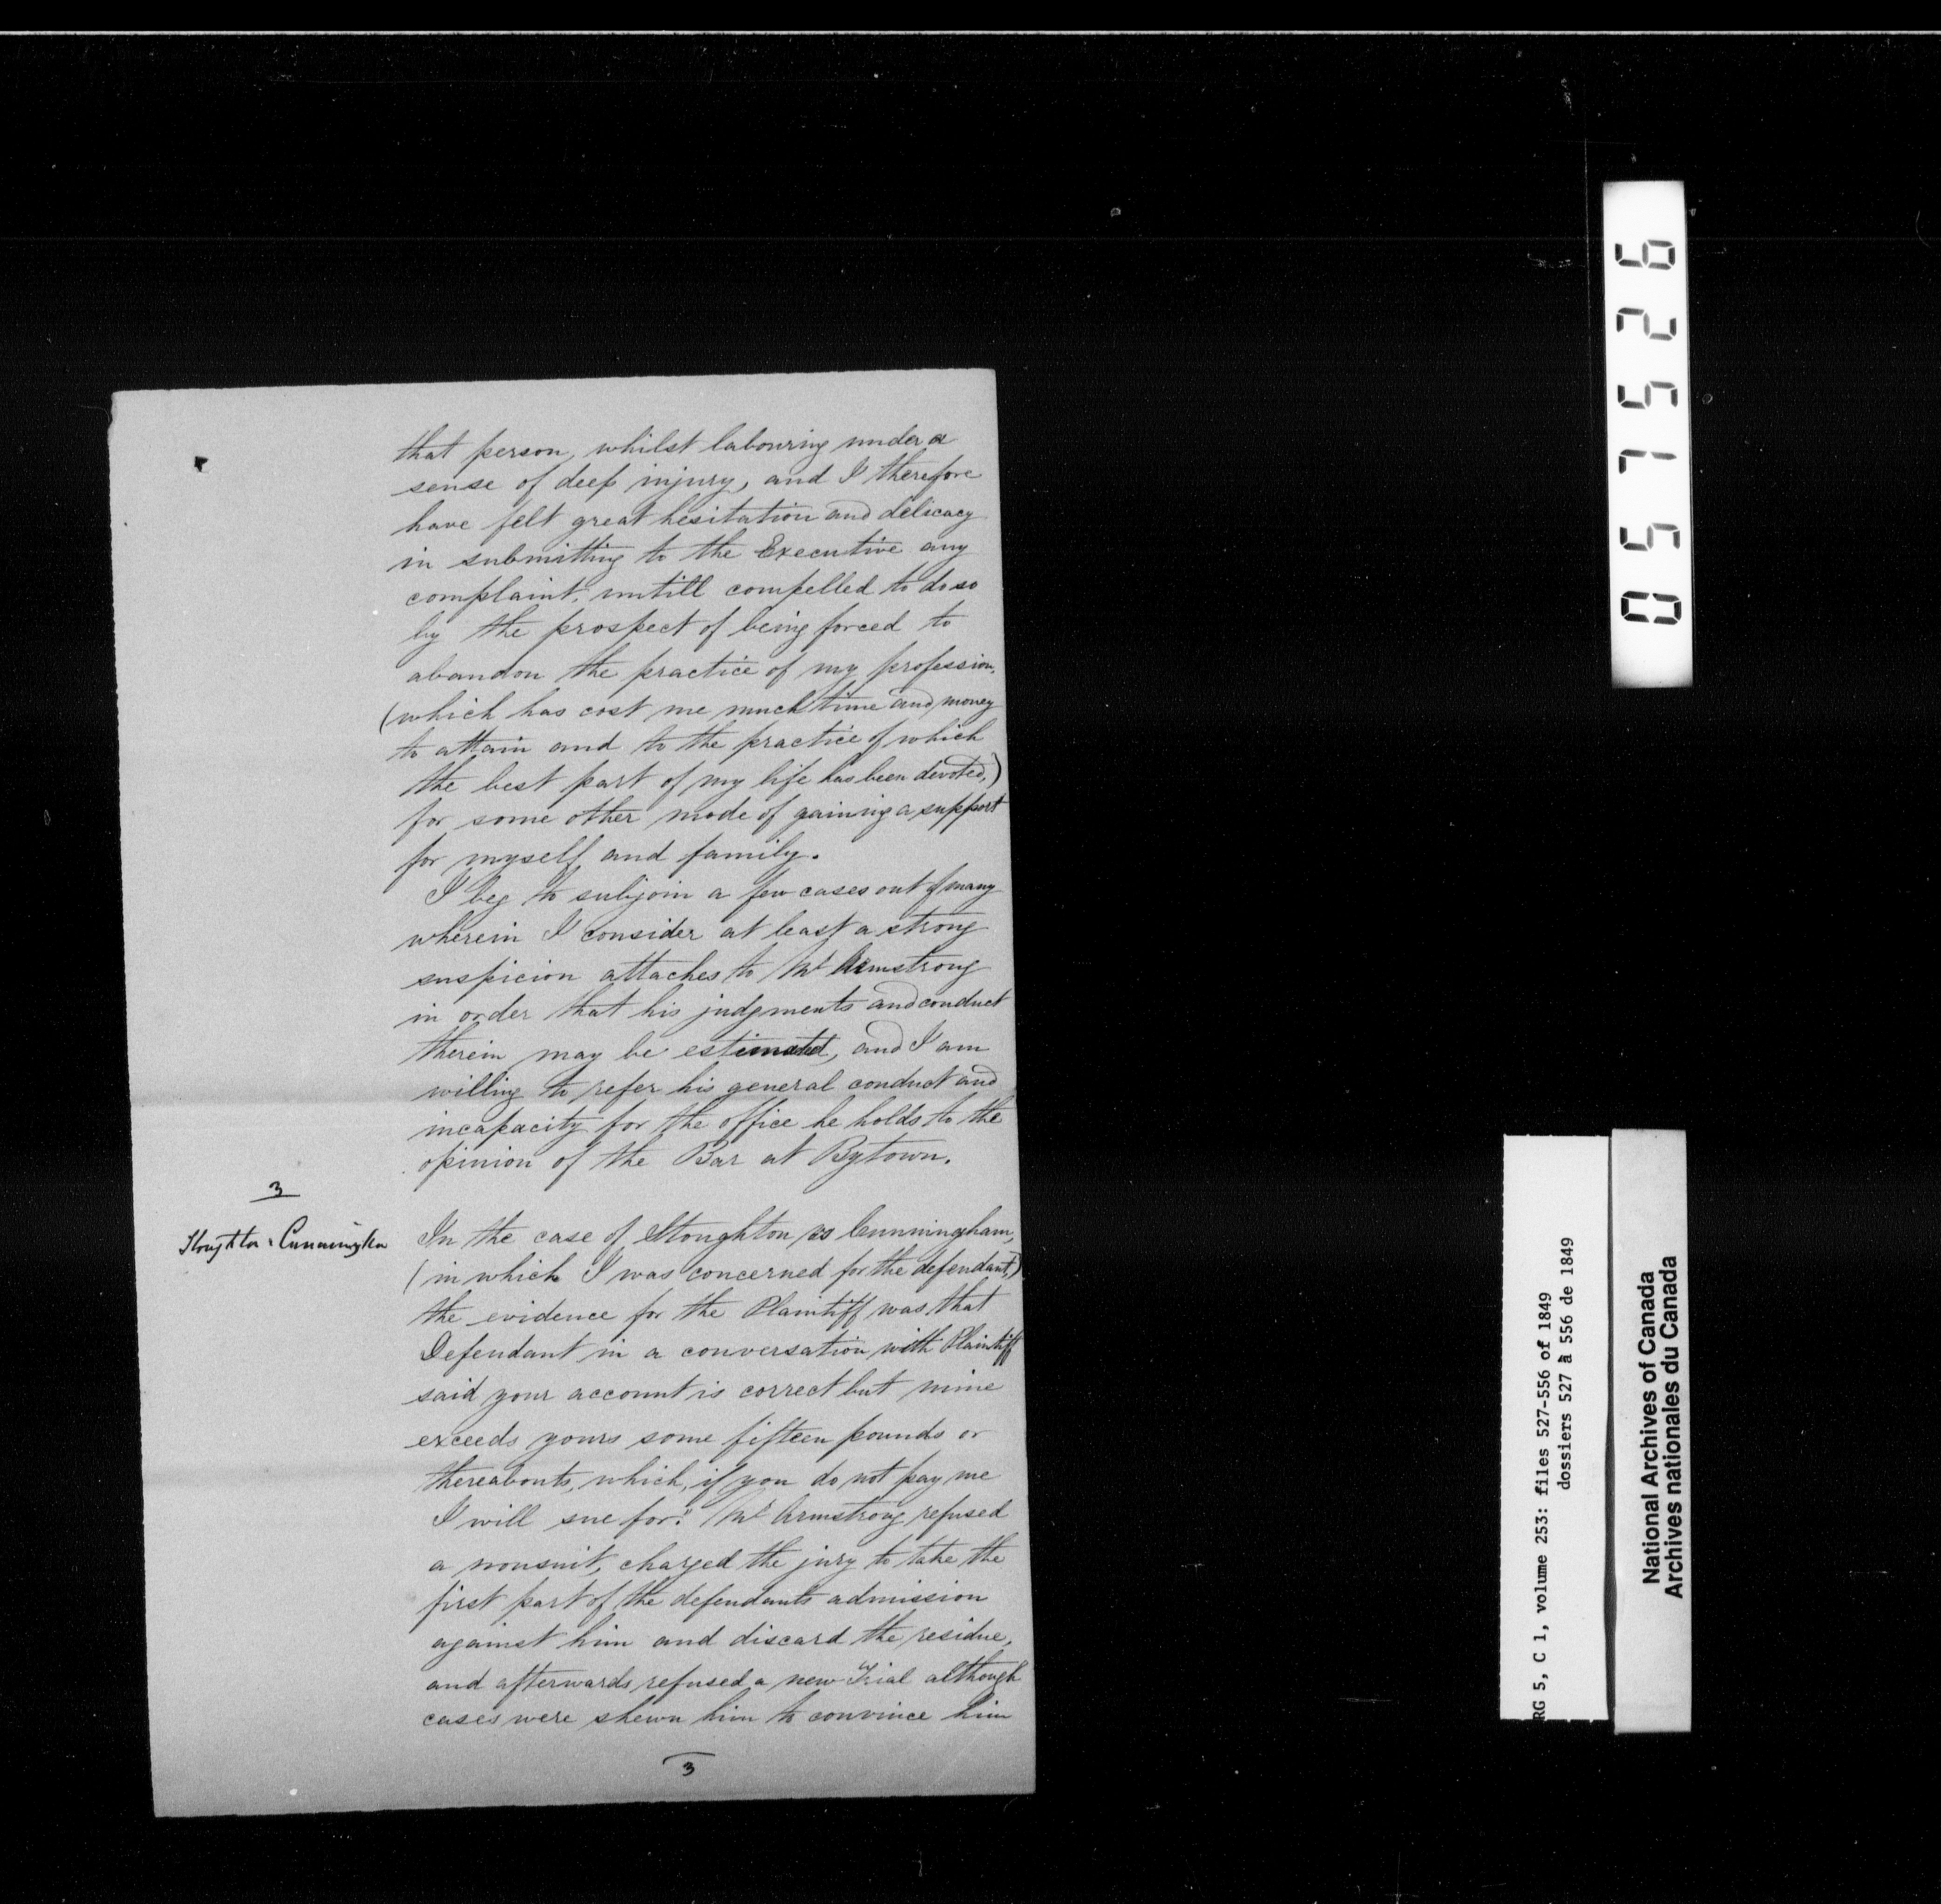 that person, whilst labouring under a
sense of deep injury, and I therefore
have felt great hesitation and delicacy
in submitting to the Executive any
complaint, untill compelled to do so
by the prospect of being forced to
abandon the practice of my profession,
(which has cost me much time and money
to attain and to the practice of which
the best part of my life has been devoted,)
for some other mode of gaining a support
for myself and family.
I beg to subjoin a few cases out of many
wherein I consider at least a strong
suspicion attaches to Mr Armstrong
in order that his judgments and conduct
therein may be estimated, and I am
willing to refer his general conduct and
incapacity for the office he holds to the
opinion of the Bar at Bytown.
3
Stoughton v Cunningham
In the case of Stoughton vs Cunningham,
(in which I was concerned for the defendant,)
the evidence for the Plaintiff was that
Defendant in a conversation with Plaintiff
said your account is correct but mine
exceeds yours some fifteen pounds or
thereabouts, which, if you do not pay me
I will sue for." Mr Armstrong refused
a nonsuit, charged the jury to take the
first part of the defendants admission
against him and discard the residue,
and afterwards refused a new Trial although
cases were shewn him to convince him
3
057526
RG 5, C 1, volume 253: files 527-556 of 1849
dossiers 527 à 556 de 1849
National Archives of Canada
Archives nationales du Canada